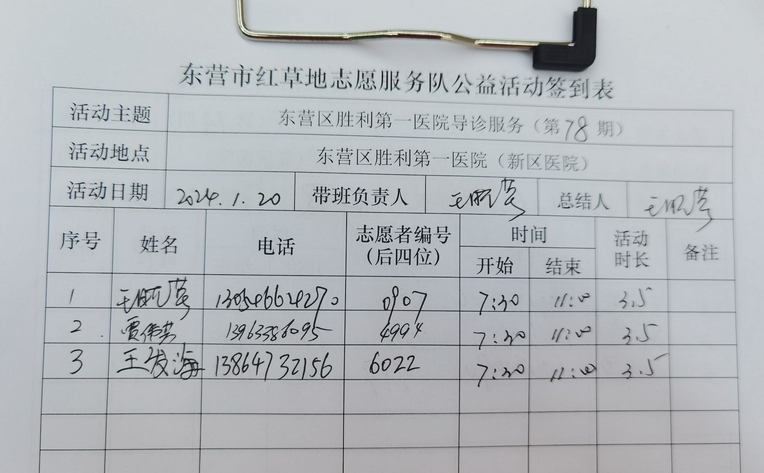 东营市红草地志愿服务队公益活动签到表
活动主题 东营区胜利第一医院导诊服务（第78期）
活动地点 东营区胜利第一医院（新区医院）
活动日期 2024.1.20 带班负责人 总结人
序号 姓名 电话 志愿者编号（后四位） 时间 开始 结束 活动时长 备注
1 13054662270 0907 7:30 11:00 3.5
2 13963386095 4994 7:30 11:00 3.5
3 王发海 13864732156 6022 7:30 11:00 3.5